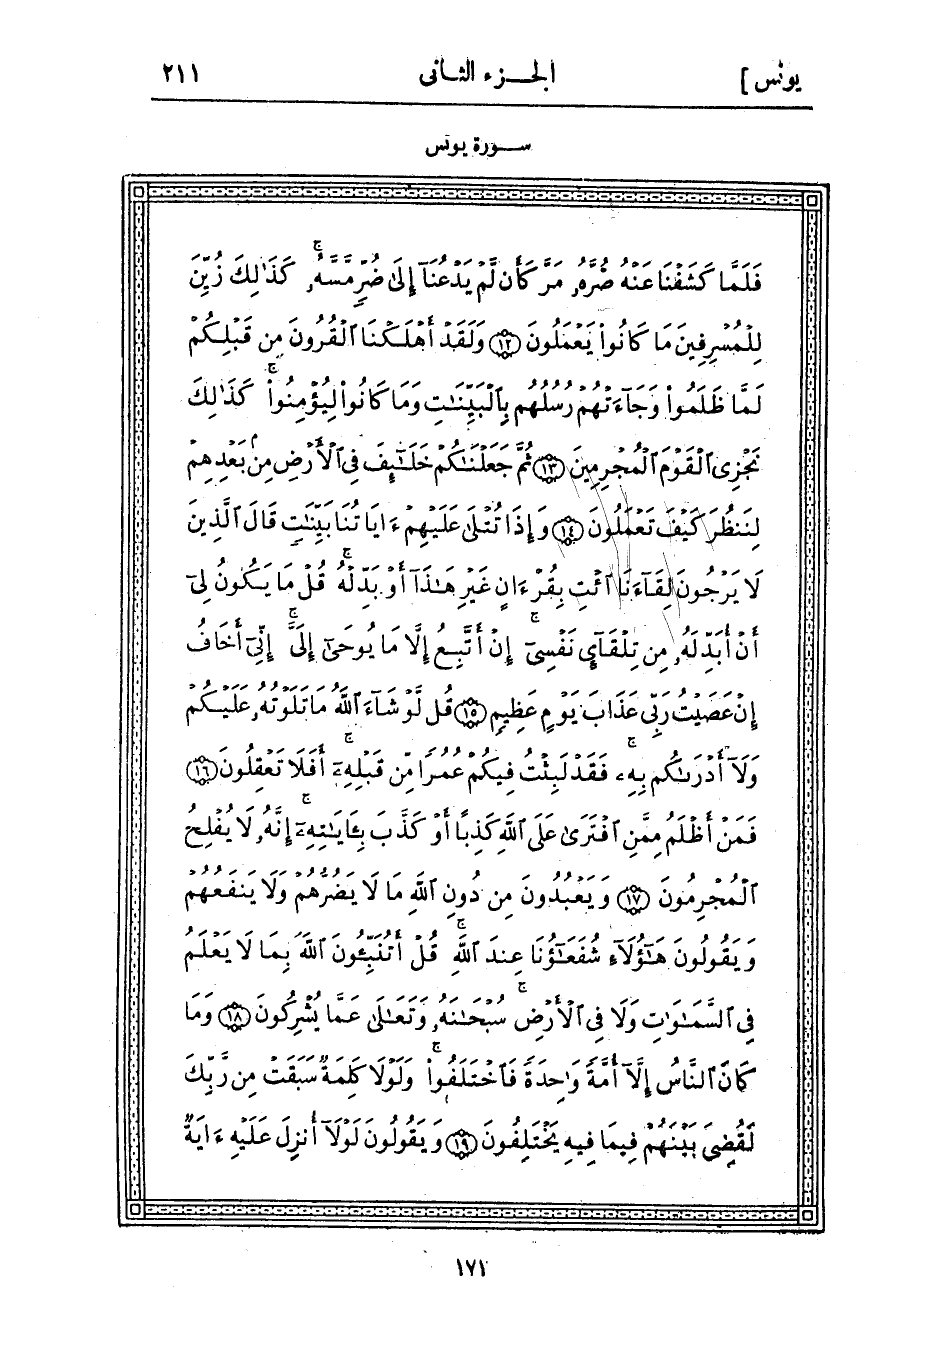 يونس ]
الجزء الثانى
٢١١
سورة يونس
فَلَمَّا كَشَفْنَا عَنْهُ ضُرَّهُۥ مَرَّ كَأَن لَّمْ يَدْعُنَآ إِلَىٰ ضُرٍّ مَّسَّهُۥ ۚ كَذَٰلِكَ زُيِّنَ
لِلْمُسْرِفِينَ مَا كَانُوا۟ يَعْمَلُونَ ١٢ وَلَقَدْ أَهْلَكْنَا ٱلْقُرُونَ مِن قَبْلِكُمْ
لَمَّا ظَلَمُوا۟ وَجَآءَتْهُمْ رُسُلُهُم بِٱلْبَيِّنَٰتِ وَمَا كَانُوا۟ لِيُؤْمِنُوا۟ ۚ كَذَٰلِكَ
نَجْزِى ٱلْقَوْمَ ٱلْمُجْرِمِينَ ١٣ ثُمَّ جَعَلْنَٰكُمْ خَلَٰٓئِفَ فِى ٱلْأَرْضِ مِنۢ بَعْدِهِمْ
لِنَنظُرَ كَيْفَ تَعْمَلُونَ ١٤ وَإِذَا تُتْلَىٰ عَلَيْهِمْ ءَايَاتُنَا بَيِّنَٰتٍ قَالَ ٱلَّذِينَ
لَا يَرْجُونَ لِقَآءَنَا ٱئْتِ بِقُرْءَانٍ غَيْرِ هَٰذَآ أَوْ بَدِّلْهُ ۚ قُلْ مَا يَكُونُ لِىٓ
أَنْ أُبَدِّلَهُۥ مِن تِلْقَآئِ نَفْسِىٓ ۚ إِنْ أَتَّبِعُ إِلَّا مَا يُوحَىٰٓ إِلَىَّ ۚ إِنِّىٓ أَخَافُ
إِنْ عَصَيْتُ رَبِّى عَذَابَ يَوْمٍ عَظِيمٍ ١٥ قُل لَّوْ شَآءَ ٱللَّهُ مَا تَلَوْتُهُۥ عَلَيْكُمْ
وَلَآ أَدْرَىٰكُم بِهِۦ ۚ فَقَدْ لَبِثْتُ فِيكُمْ عُمُرًا مِّن قَبْلِهِۦٓ ۚ أَفَلَا تَعْقِلُونَ ١٦
فَمَنْ أَظْلَمُ مِمَّنِ ٱفْتَرَىٰ عَلَى ٱللَّهِ كَذِبًا أَوْ كَذَّبَ بِـَٔايَٰتِهِۦٓ ۚ إِنَّهُۥ لَا يُفْلِحُ
ٱلْمُجْرِمُونَ ١٧ وَيَعْبُدُونَ مِن دُونِ ٱللَّهِ مَا لَا يَضُرُّهُمْ وَلَا يَنفَعُهُمْ
وَيَقُولُونَ هَٰٓؤُلَآءِ شُفَعَٰٓؤُنَا عِندَ ٱللَّهِ ۚ قُلْ أَتُنَبِّـُٔونَ ٱللَّهَ بِمَا لَا يَعْلَمُ
فِى ٱلسَّمَٰوَٰتِ وَلَا فِى ٱلْأَرْضِ ۚ سُبْحَٰنَهُۥ وَتَعَٰلَىٰ عَمَّا يُشْرِكُونَ ١٨ وَمَا
كَانَ ٱلنَّاسُ إِلَّآ أُمَّةً وَٰحِدَةً فَٱخْتَلَفُوا۟ ۚ وَلَوْلَا كَلِمَةٌ سَبَقَتْ مِن رَّبِّكَ
لَقُضِىَ بَيْنَهُمْ فِيمَا فِيهِ يَخْتَلِفُونَ ١٩ وَيَقُولُونَ لَوْلَآ أُنزِلَ عَلَيْهِ ءَايَةٌ
١٧١